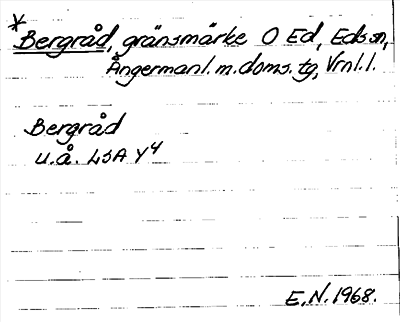 *
Bergråd, gränsmärke O Ed, Eds sn,
Ångermanl. m. doms. tg, Vrnl. l.
Bergråd
u.å. LSA Y4
E.N. 1968.